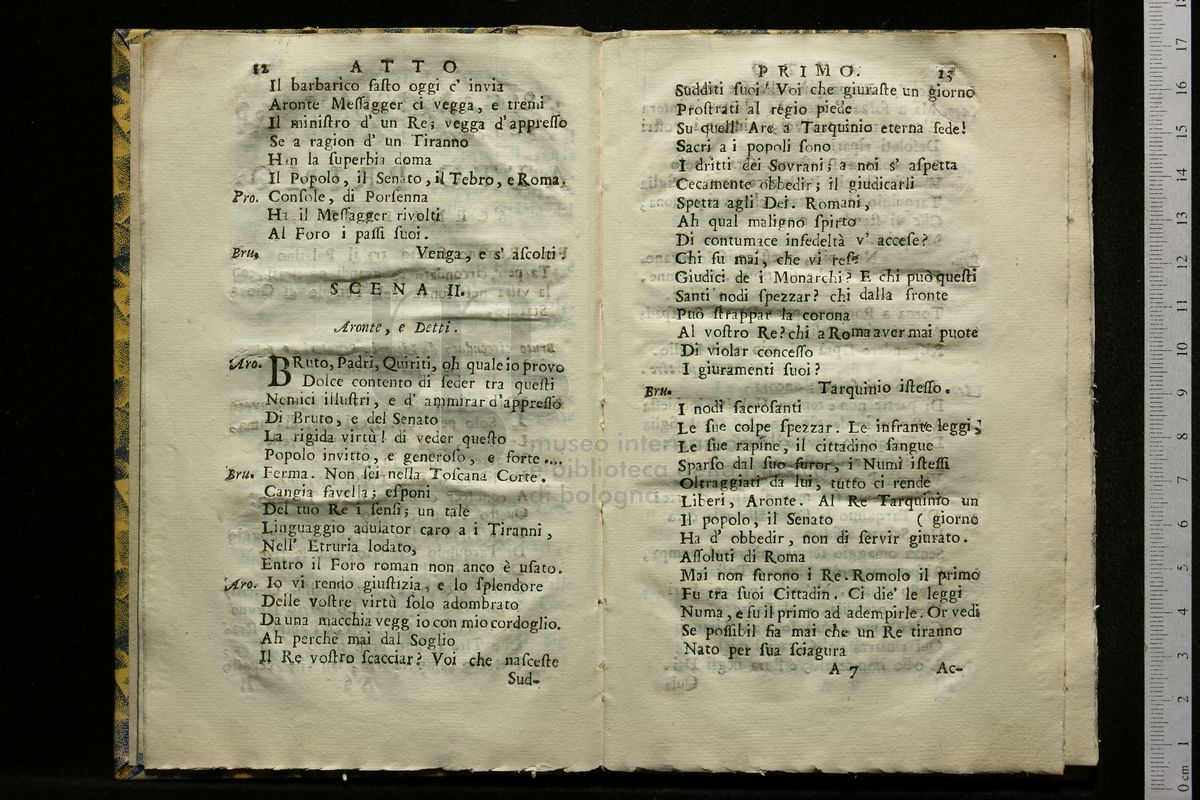 12 ATTO
Il barbarico fasto oggi c' invia
Aronte Messagger ci vegga, e tremi
Il ministro d' un Re; vegga d'appresso
Se a ragion d' un Tiranno
Han la superbia doma
Il Popolo, il Senato, il Tebro, e Roma.
Pro. Console, di Porsenna
Ha il Messagger rivolti
Al Foro i passi suoi.
Bru. Venga, e s' ascolti.
SCENA II.
Aronte, e Detti.
Aro. BRuto, Padri, Quiriti, oh quale io provo
Dolce contento di seder tra questi
Nemici illustri, e d' ammirar d'appresso
Di Bruto, e del Senato
La rigida virtù! di veder questo
Popolo invitto, e generoso, e forte....
Bru. Ferma. Non sei nella Toscana Corte.
Cangia favella; esponi
Del tuo Re i sensi; un tale
Linguaggio adulator caro a i Tiranni,
Nell' Etruria lodato,
Entro il Foro roman non anco è usato.
Aro. Io vi rendo giustizia, e lo splendore
Delle vostre virtù solo adombrato
Da una macchia vegg io con mio cordoglio.
Ah perchè mai dal Soglio
Il Re vostro scacciar? Voi che nasceste
Sud-
PRIMO. 13
Sudditi suoi! Voi che giuraste un giorno
Prostrati al regio piede
Su quell' Are a Tarquinio eterna fede!
Sacri a i popoli sono
I dritti dei Sovrani; a noi s' aspetta
Cecamente obbedir; il giudicarli
Spetta agli Dei. Romani,
Ah qual maligno spirto
Di contumace infedeltà v' accese?
Chi fu mai, che vi rese
Giudici de i Monarchi? E chi può questi
Santi nodi spezzar? chi dalla fronte
Può strappar la corona
Al vostro Re? chi a Roma aver mai puote
Di violar concesso
I giuramenti suoi?
Bru. Tarquinio istesso.
I nodi sacrosanti
Le sue colpe spezzar. Le infrante leggi,
Le sue rapine, il cittadino sangue
Sparso dal suo furor, i Numi istessi
Oltraggiati da lui, tutto ci rende
Liberi, Aronte. Al Re Tarquinio un
Il popolo, il Senato ( giorno
Ha d' obbedir, non di servir giurato.
Assoluti di Roma
Mai non furono i Re. Romolo il primo
Fu tra suoi Cittadin. Ci die' le leggi
Numa, e fu il primo ad adempirle. Or vedi
Se possibil fia mai che un Re tiranno
Nato per sua sciagura
A 7 Ac-
museo internazionale
e biblioteca
di bologna